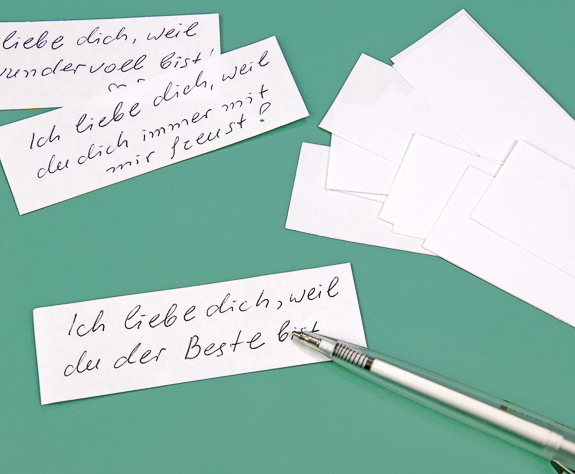 liebe dich, weil
wundervoll bist!
Ich liebe dich, weil
du dich immer mit
mir freust?
Ich liebe dich, weil
du der Beste bist